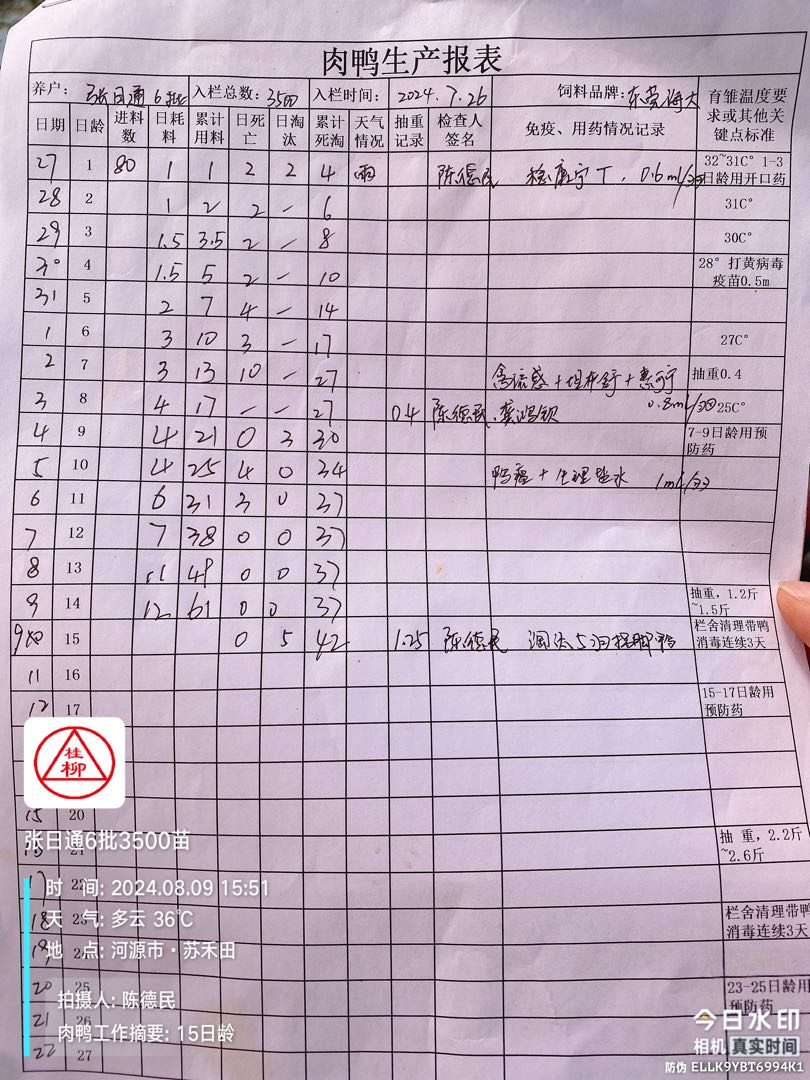 肉鸭生产报表
养户: 张日通6批 入栏总数: 3500 入栏时间: 2024.7.26 饲料品牌: 东莞海大 育雏温度要求或其他关键点标准
日期 日龄 进料数 日耗料 累计用料 日死亡 日淘汰 累计死淘 天气情况 抽重记录 检查人签名 免疫、用药情况记录
27 1 80 1 1 2 2 4 雨 陈德民 0.6ml/羽 32~31C° 1-3日龄用开口药
28 2 1 2 2 - 6 31C°
29 3 1.5 3.5 2 - 8 30C°
30 4 1.5 5 2 - 10 28° 打黄病毒疫苗0.5m
31 5 2 7 4 - 14
1 6 3 10 3 - 17 27C°
2 7 3 13 10 - 27 禽流感+ 抽重0.4
3 8 4 17 - - 27 0.4 陈德民 0.8ml/羽 25C°
4 9 4 21 0 3 30 7-9日龄用预防药
5 10 4 25 4 0 34 鸭瘟+生理盐水 1ml/羽
6 11 6 31 3 0 37
7 12 7 38 0 0 37
8 13 11 49 0 0 37
9 14 12 61 0 0 37 抽重,1.2斤~1.5斤
10 15 0 5 42 1.25 陈德民 淘汰5羽 栏舍清理带鸭消毒连续3天
11 16
12 17 15-17日龄用预防药
桂柳
15 20
张日通6批3500苗
21 抽 重, 2.2斤~2.6斤
17 22
时 间: 2024.08.09 15:51
18 23 栏舍清理带鸭消毒连续3天
天 气: 多云 36℃
19 24
地 点: 河源市·苏禾田
20 25 23-25日龄用预防药
拍摄人: 陈德民
21 26
肉鸭工作摘要: 15日龄
22 27
今日水印
相机 真实时间
防伪 ELLK9YBT6994K1